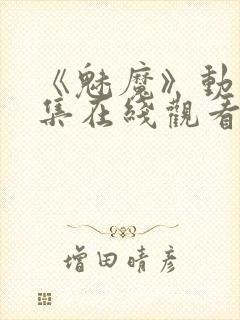 《魅魔》動
集在綫觀看
增田晴彥